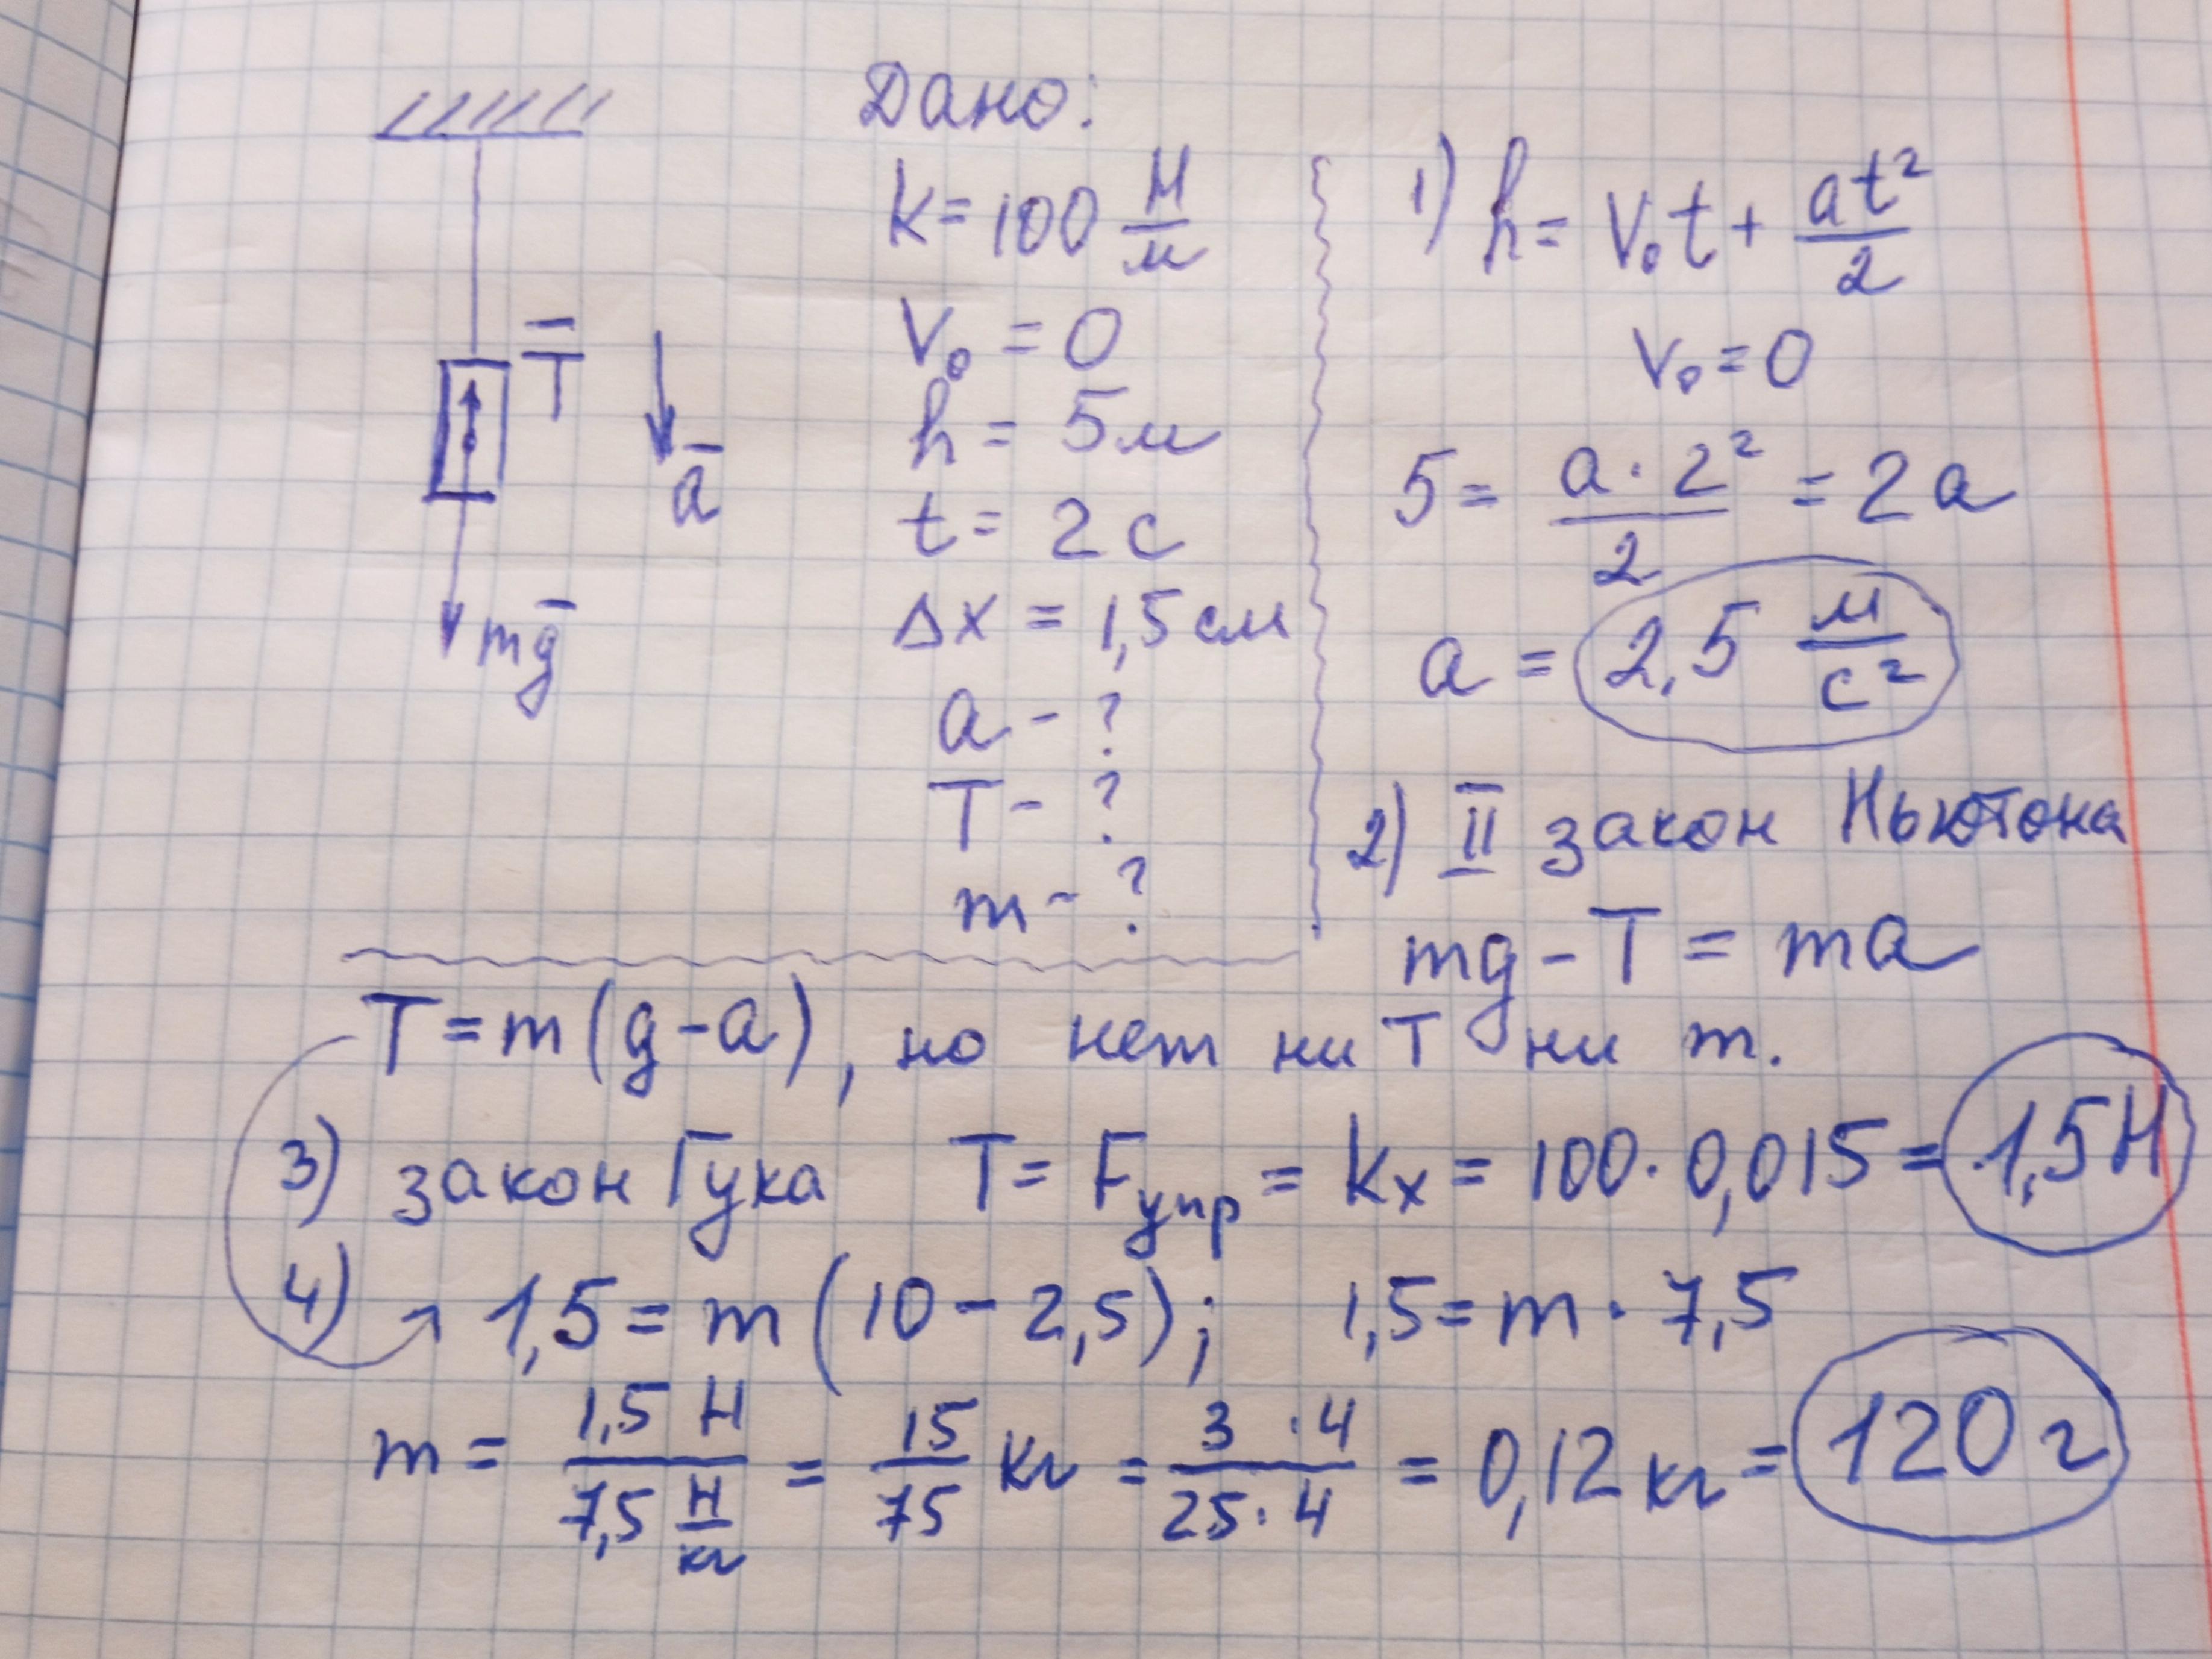 Дано:
k = 100 Н/м
V₀ = 0
h = 5 м
t = 2 с
Δx = 1,5 см
a - ?
T - ?
m - ?
T̄
ā
mḡ
1) h = V₀t + at²/2
V₀ = 0
5 = a · 2²/2 = 2a
a = 2,5 м/с²
2) II закон Ньютона
mg - T = ma
T = m(g - a), но нет ни T ни m.
3) закон Гука T = Fупр = kx = 100 · 0,015 = 1,5 Н
4) 1,5 = m(10 - 2,5); 1,5 = m · 7,5
m = 1,5 Н/7,5 Н/кг = 15/75 кг = 3 · 4/25 · 4 = 0,12 кг = 120 г